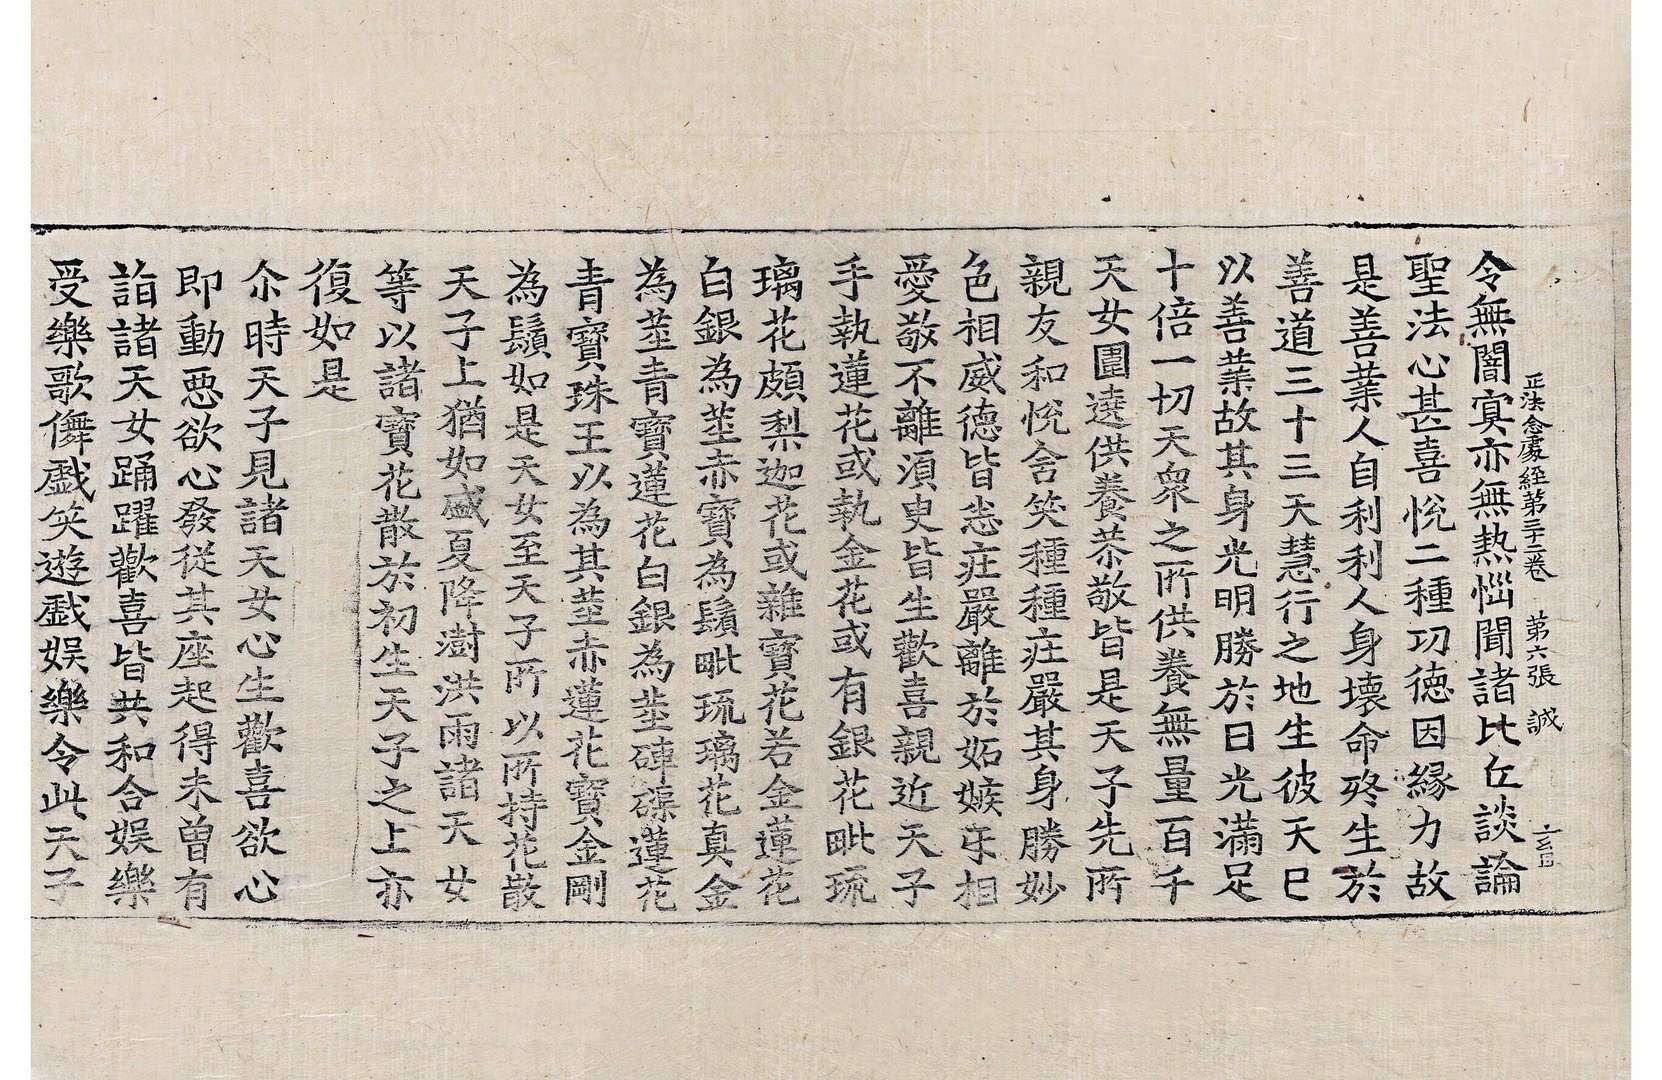 正法念處經第三十二卷 第六張 誠
令無闇冥亦無熱惱聞諸比丘談論
聖法心甚喜悅二種功德因緣力故
是善業人自利利人身壞命終生於
善道三十三天慧行之地生彼天已
以善業故其身光明勝於日光滿足
十倍一切天衆之所供養無量百千
天女圍遶供養恭敬皆是天子先所
親友和悅含笑種種莊嚴其身勝妙
色相威德皆悉莊嚴離於妬嫉互相
愛敬不離須臾皆生歡喜親近天子
手執蓮花或執金花或有銀花毗琉
璃花頗梨迦花或雜寶花若金蓮花
白銀為莖赤寶為鬚毗琉璃花真金
為莖青寶蓮花白銀為莖硨磲蓮花
青寶珠王以為其莖赤蓮花寶金剛
為鬚如是天女至天子所以所持花散
天子上猶如盛夏降澍洪雨諸天女
等以諸寶花散於初生天子之上亦
復如是
尒時天子見諸天女心生歡喜欲心
即動惡欲心發從其座起得未曾有
詣諸天女踊躍歡喜皆共和合娛樂
受樂歌儛戲笑遊戲娛樂令此天子